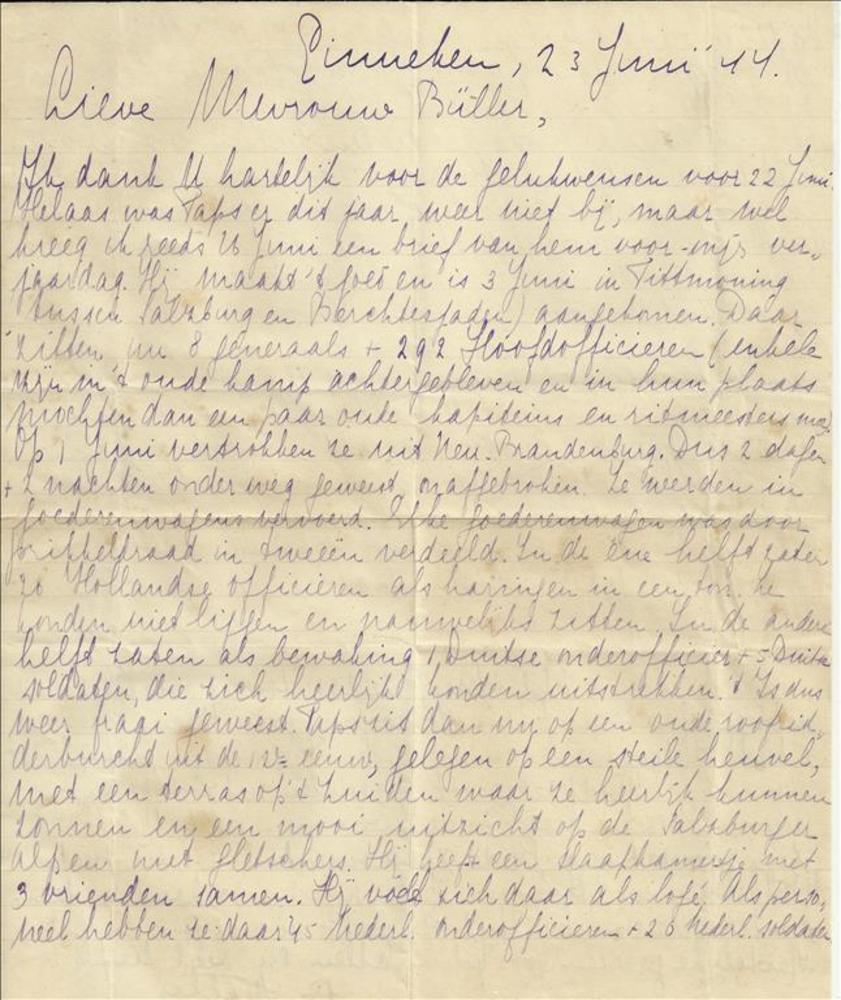 Ginneken, 23 Juni '44.
Lieve Mevrouw Büller,
Ik dank U hartelijk voor de gelukwensen voor 22 Juni.
Helaas was Paps er dit jaar weer niet bij, maar wel
kreeg ik reeds Juni een brief van hem voor mijn ver-
jaardag. Hij maakt 't goed en is 3 Juni in Tittmoning
(tussen Salzburg en Berchtesgaden) aangekomen. Daar
zitten nu 8 generaals + 292 Hoofdofficieren (enkele
zijn in 't oude kamp achtergebleven en in hun plaats
mochten dan een paar oude kapiteins en ritmeesters mee).
Op 1 Juni vertrokken ze uit Neu-Brandenburg. Dus 2 dagen
+ 2 nachten onder weg geweest, onafgebroken. Ze werden in
goederenwagens vervoerd. Elke goederenwagen was door
prikkeldraad in tweeën verdeeld. In de ene helft zaten
Hollandse officieren als haringen in een ton. Ze
konden niet liggen en nauwelijks zitten. In de andere
helft zaten als bewaking 1 Duitse onderofficier + 5 Duitse
soldaten, die zich heerlijk konden uitstrekken. 't Is dus
weer fraai geweest. Paps zit dan nu op een oude roofrid-
derburcht uit de 12e eeuw, gelegen op een steile heuvel,
met een terras op 't Zuiden waar ze heerlijk kunnen
zonnen en een mooi uitzicht op de Salzburger
Alpen met gletschers. Hij heeft een slaapkamertje met
3 vrienden samen. Hij voelt zich daar als logé. Als perso-
neel hebben ze daar 45 Nederl. onderofficieren + 26 Nederl. soldaten